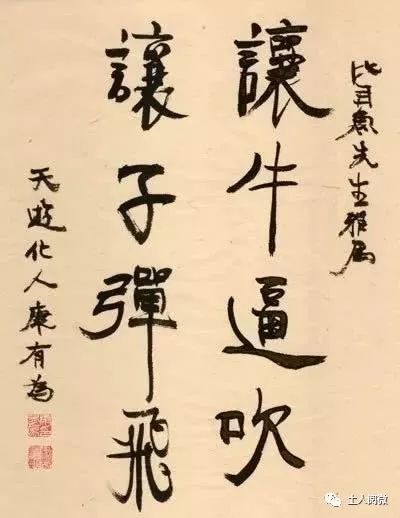 比目魚先生雅屬
讓牛逼吹
讓子彈飛
天遊化人康有為
土人阅微